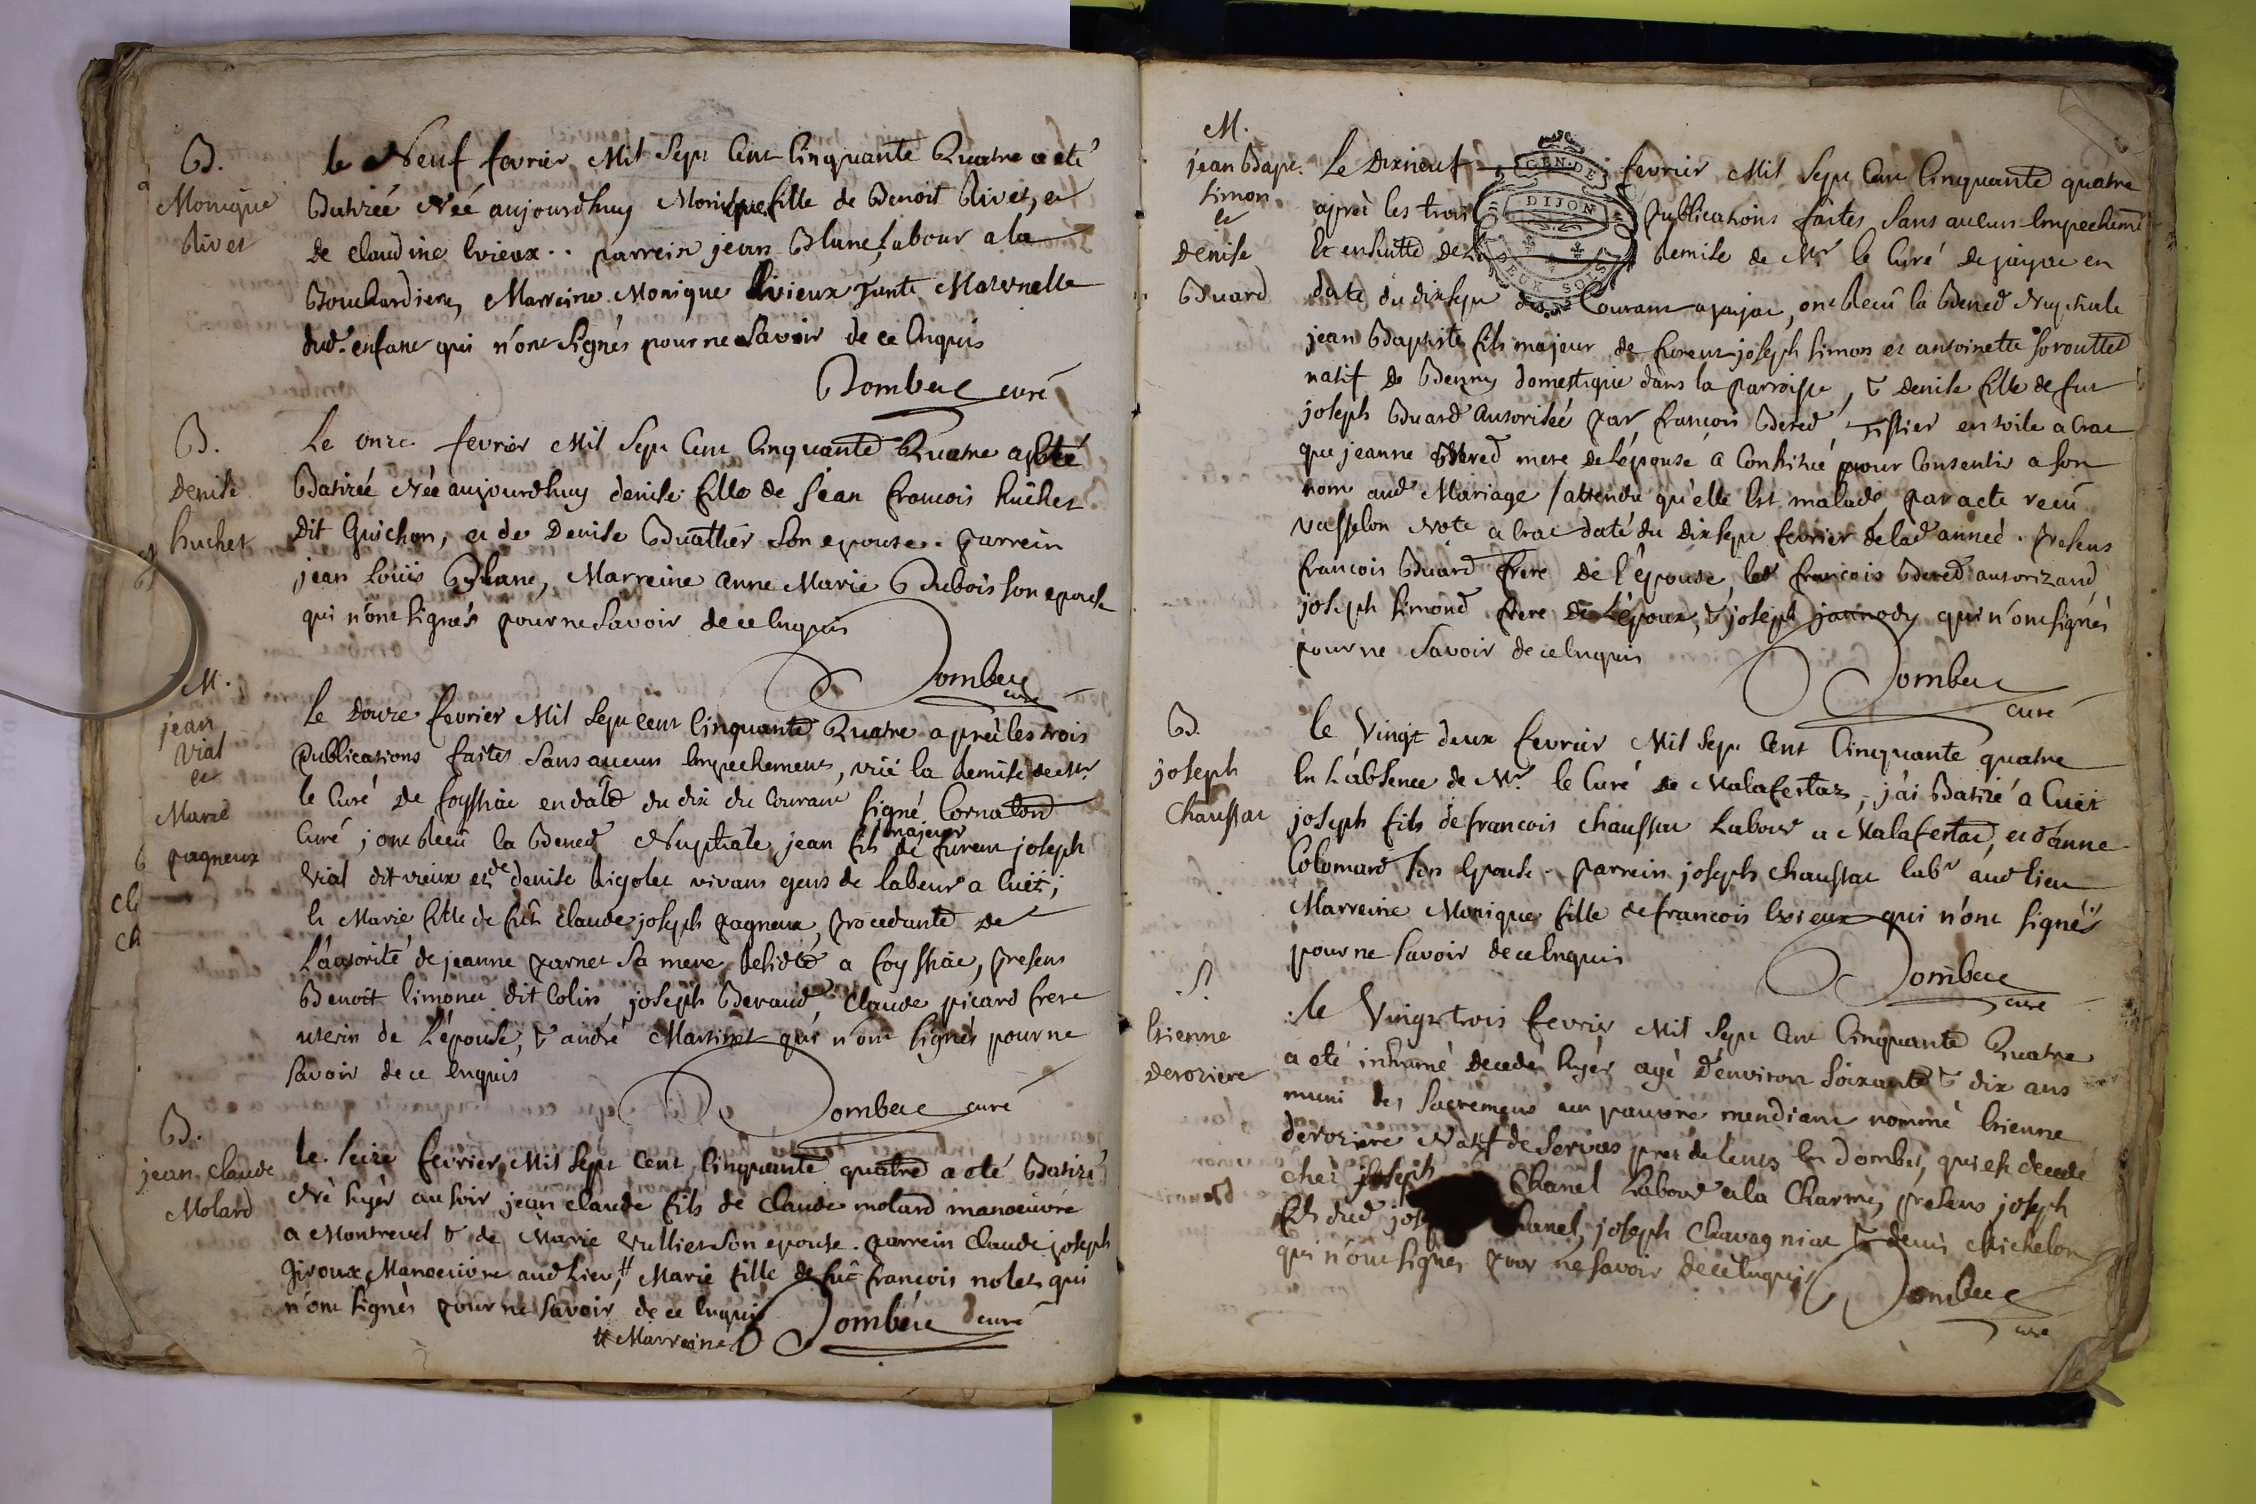 B.
Monique
Rivet
le Neuf fevrier Mil Sept Cent Cinquante Quatre a eté
Batizéé Néé aujourdhuy Monique fille de Benoit Rivet, et
de claudine Evieux.. parrein jean Blanc, Labour a la
Bouchardiere, Marreine Monique Evieux Tante Maternelle
dud. enfant qui n'ont signés pour ne Savoir de ce Enquis
Dombere curé
B.
Denise
huchet
Le onze fevrier Mil Sept Cent Cinquante Quatre a eté
Batizéé Néé aujourdhuy denise fille de Jean francois huchet
dit Guichon, et de Denise Buathier Son epouse. parrein
jean Louis Blanc, Marreine anne Marie Dubois son epouse
qui n'ont signés pour ne Savoir de ce Enquis
Dombere
curé
M.
jean
Vial
et
Marie
pagneux
Le douze fevrier Mil Sept cent Cinquante Quatre apréz les trois
Publications faites Sans aucun Empechement, vüe la Remise de Mr
le Curé de foyssiac en date du dix du Courant Signé Cornaton
Curé, ont Reçu la Bened Nuptiale jean fils majeur de fureur joseph
Vial dit vieux et de denise Rigolet vivans gens de labeur a Cuët;
Et Marie fille de fut claude joseph pagneux, procedante de
L'autorité de jeanne parnet Sa mere Residte a foyssiac, presens
Benoit Simonet dit Colin joseph Beraud Claude picard frere
uterin de L'épouse, & andré Martinet qui n'ont signés pour ne
Savoir de ce Enquis
Dombere curé
B.
jean claude
Molard
le Seize fevrier Mil Sept Cent Cinquante quatre a eté Batizé
Né hyer au soir jean claude fils de Claude molard manoeuvre
a Montrevel & de Marie Vullier Son epouse. parrein Claude joseph
Giroux Manoeuvre aud Lieu, # Marie fille de fut francois nolet qui
n'ont signés pour ne Savoir de ce Enquis
# Marreine
Dombere curé
M.
jean Bapt.
Simon
et
Denise
Buard
Le Dixneuf fevrier Mil Sept Cent Cinquante quatre
aprés les trois publications faites Sans aucun Empechemt
Et ensuitte de la Remise de Mr le Curé de jayac en
date du dixsept du Courant a jayac, ont Reçû la Bened Nuptiale
jean Baptiste fils majeur de fureur joseph Simon et antoinette
natif de Benny domestique dans la parroisse, & denise fille de fut
joseph Buard autorisée par francois Bered Tissier en toile a
que jeanne Bered mere de l'épouse a Constitué pour Consentir a son
nom aud Mariage / attendu qu'elle Est malade, par acte reçu
Vasselon Note a daté du dixsept fevrier de lad année. Presens
francois Buard frere de l'épouse led francois Bered autorizand
joseph Simond frere de l'époux, & joseph jannody qui n'ont signés
pour ne Savoir de ce Enquis
Dombere
curé
B.
joseph
Chaussat
le Vingt deux fevrier Mil Sept Cent Cinquante quatre
En L'absence de Mr. le Curé de Malafertaz, j'ai Batizé a Cuët
joseph fils de francois chaussat Labour a Malafertaz, et d'anne
Colomard Son Epouse. parrein joseph chaussat labr aud lieu
Marreine Monique fille de francois Evieux qui n'ont signés
pour ne Savoir de ce Enquis
Dombere
curé
S.
Etienne
Deroziere
le Vingt trois fevrier Mil Sept Cent Cinquante Quatre
a eté inhumé decedé hyer agé d'environ Soixante & dix ans
muni des Sacremens un pauvre mendiant nommé Etienne
deroziere Natif de Servas prez de Lents En Dombes, qui est decedé
chez joseph Chanel Labour a la Charme, presens joseph
fils dud joseph Chanel, joseph Chavagniat & denis Michelon
qui n'ont signés pour ne savoir de ce Enquis
Dombere
curé
GEN. DE
DIJON
DEUX SOLS